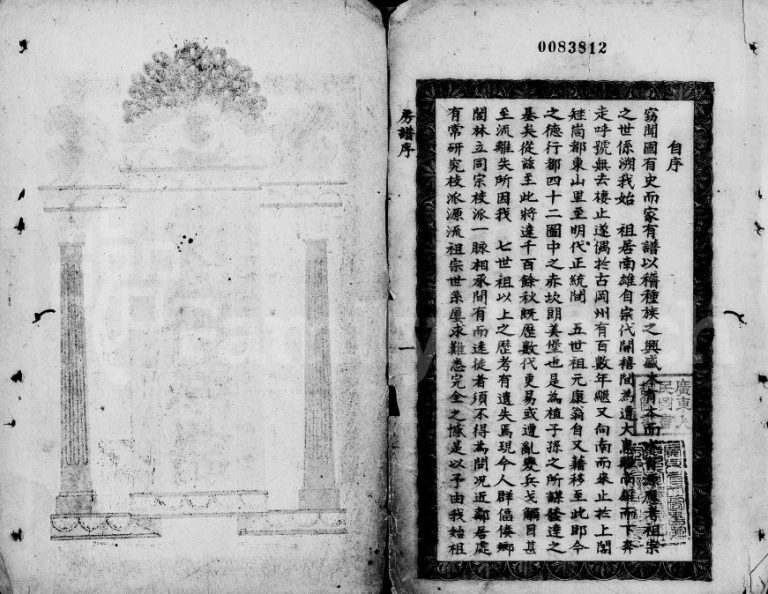 0083812
自序
竊聞國有史而家有譜以稽種族之興盛木有本而水有源應考祖宗
之世係溯我始 祖居南雄自宗代開禧間為遭大患離南雄而下奔
走呼號無去棲止遂偶於古岡州有百數年繼又向南而來止於上閣
矬崗都東山里至明代正統間 五世祖元康翁自又藉移至此即今
之德行都四十二圖中之赤坎朗美堡也是為植子孫之所謀發達之
基矣從茲至此將達千百餘秋既歷數代更易或遭亂變兵戈觸目甚
至流離失所因我 七世祖以上之歷考有遺失焉現今人群偪倐鄉
閭林立同宗枝派一脉相承間有而遠徒者須不得為問况近鄰居處
有常研究枝派源流祖宗世系屢求難悉完全之憾是以予由我始祖
房譜序
一